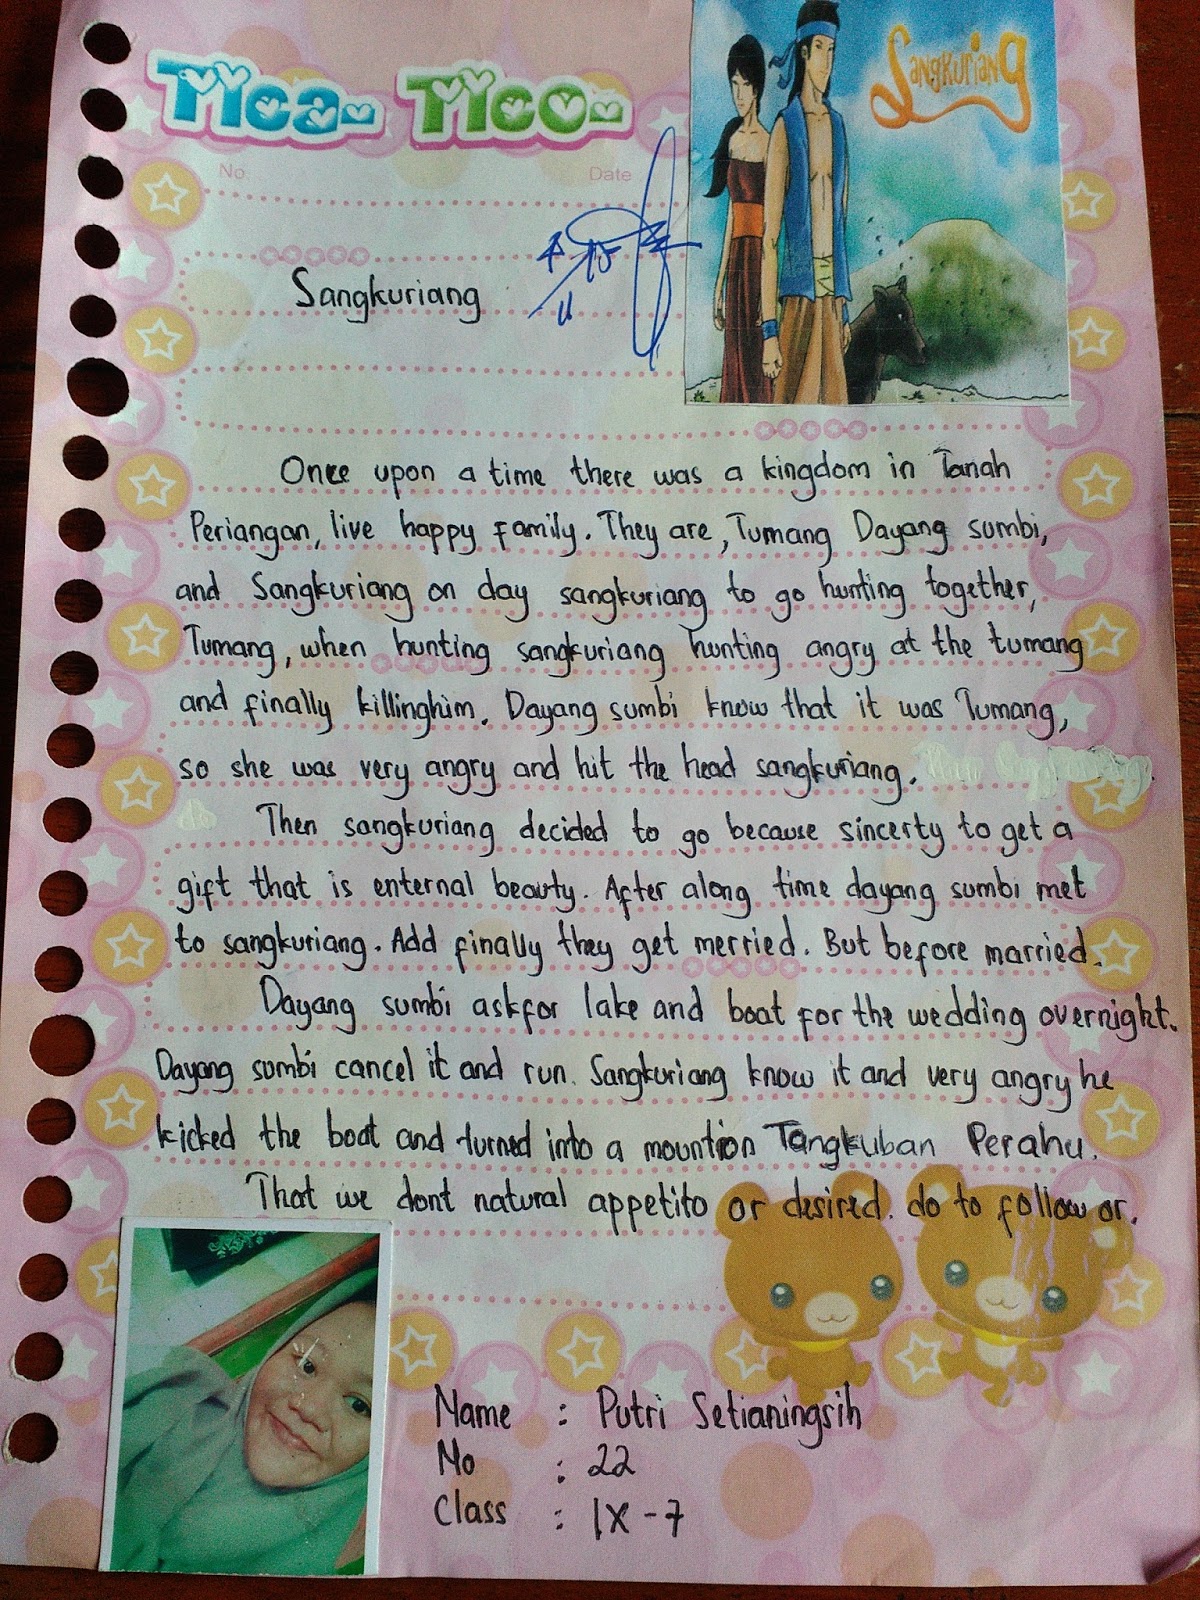 Tica- Tico-
Sangkuriang
No.
Date
Sangkuriang
Once upon a time there was a kingdom in Tanah
Periangan, live happy family. They are, Tumang Dayang sumbi,
and Sangkuriang on day sangkuriang to go hunting together,
Tumang, when hunting sangkuriang hunting angry at the tumang
and finally killinghim. Dayang sumbi know that it was Tumang,
so she was very angry and hit the head sangkuriang.
Then sangkuriang decided to go because sincerty to get a
gift that is enternal beauty. After along time dayang sumbi met
to sangkuriang. Add finally they get merried. But before married.
Dayang sumbi askfor lake and boat for the wedding overnight.
Dayang sumbi cancel it and run. Sangkuriang know it and very angry he
kicked the boat and turned into a mountion Tangkuban Perahu.
That we dont natural appetito or desired. do to follow or.
Name : Putri Setianingsih
No : 22
Class : IX - 7